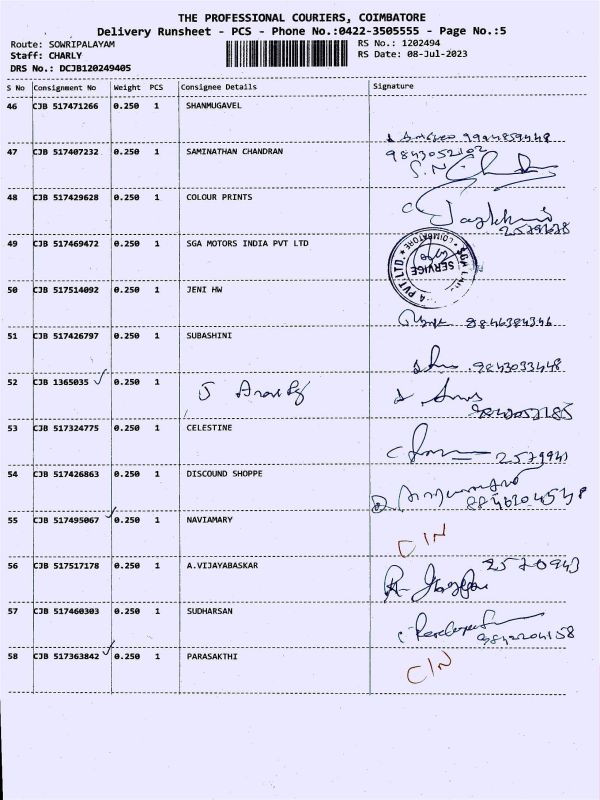 THE PROFESSIONAL COURIERS, COIMBATORE
Delivery Runsheet - PCS - Phone No.:0422-3505555 - Page No.:5
Route: SOWRIPALAYAM RS No.: 1202494
Staff: CHARLY RS Date: 08-Jul-2023
DRS No.: DCJB120249405
S No Consignment No Weight PCS Consignee Details Signature
46 CJB 517471266 0.250 1 SHANMUGAVEL
47 CJB 517407232 0.250 1 SAMINATHAN CHANDRAN 9843052102
48 CJB 517429628 0.250 1 COLOUR PRINTS
49 CJB 517469472 0.250 1 SGA MOTORS INDIA PVT LTD
COIMBATORE
SERVICE
50 CJB 517514092 0.250 1 JENI HW
9846384346
51 CJB 517426797 0.250 1 SUBASHINI
9843033448
52 CJB 1365035 0.250 1
53 CJB 517324775 0.250 1 CELESTINE
54 CJB 517426863 0.250 1 DISCOUND SHOPPE
55 CJB 517495067 0.250 1 NAVIAMARY
CIN
56 CJB 517517178 0.250 1 A.VIJAYABASKAR 2570943
57 CJB 517460303 0.250 1 SUDHARSAN
9842204158
58 CJB 517363842 0.250 1 PARASAKTHI CIN